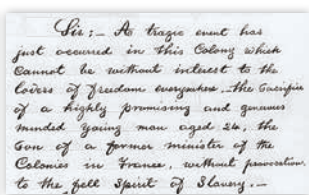 Sir:— A tragic event has
just occurred in this Colony which
cannot be without interest to the
lovers of freedom everywhere — the sacrifice
of a highly promising and generous
minded young man aged 24, the
Son of a former minister of the
Colonies in France, without provocation,
to the fell Spirit of Slavery.—